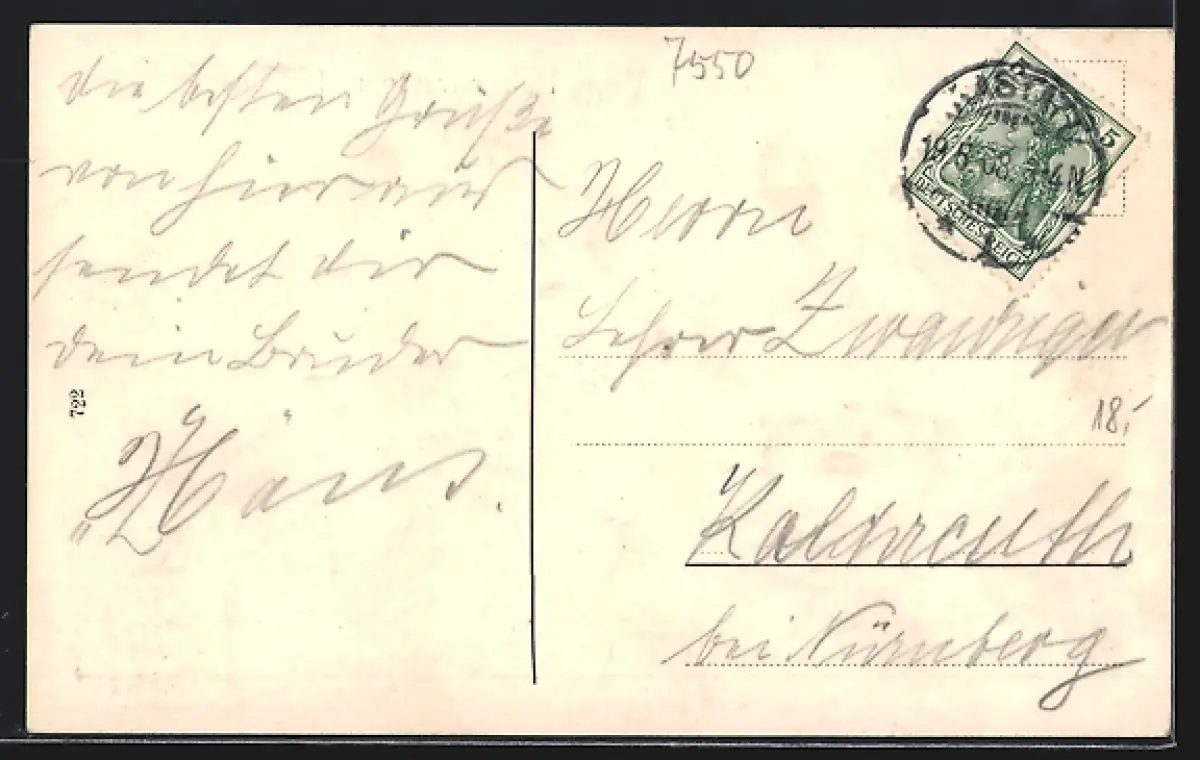 die besten Grüße
von hier aus
sendet dir
dein Bruder
Hans.
722
7550
5
DEUTSCHES REICH
Herrn
Lehrer
18,-
Kalchreuth
bei Nürnberg